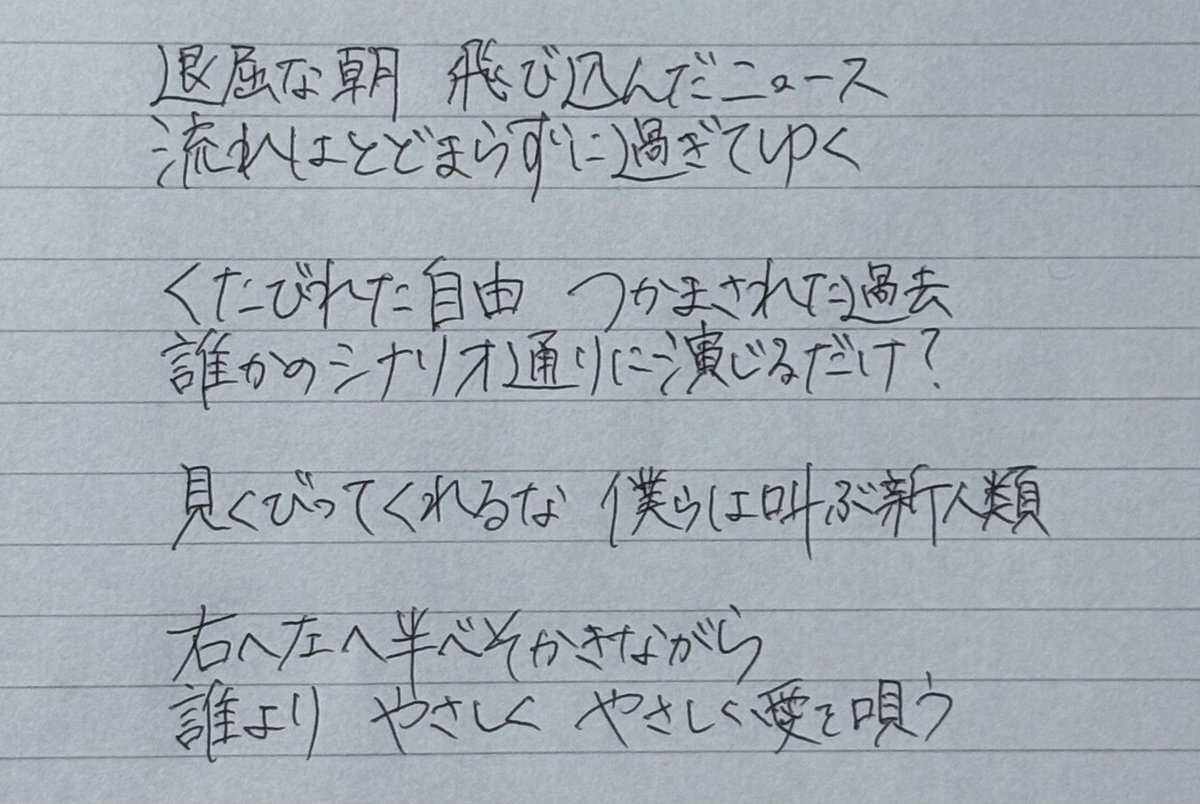 退屈な朝 飛び込んだニュース
流れはとどまらずに過ぎてゆく
くたびれた自由 つかまされた過去
誰かのシナリオ通りに演じるだけ?
見くびってくれるな 僕らは叫ぶ新人類
右へ左へ半べそかきながら
誰より やさしく やさしく愛を唄う